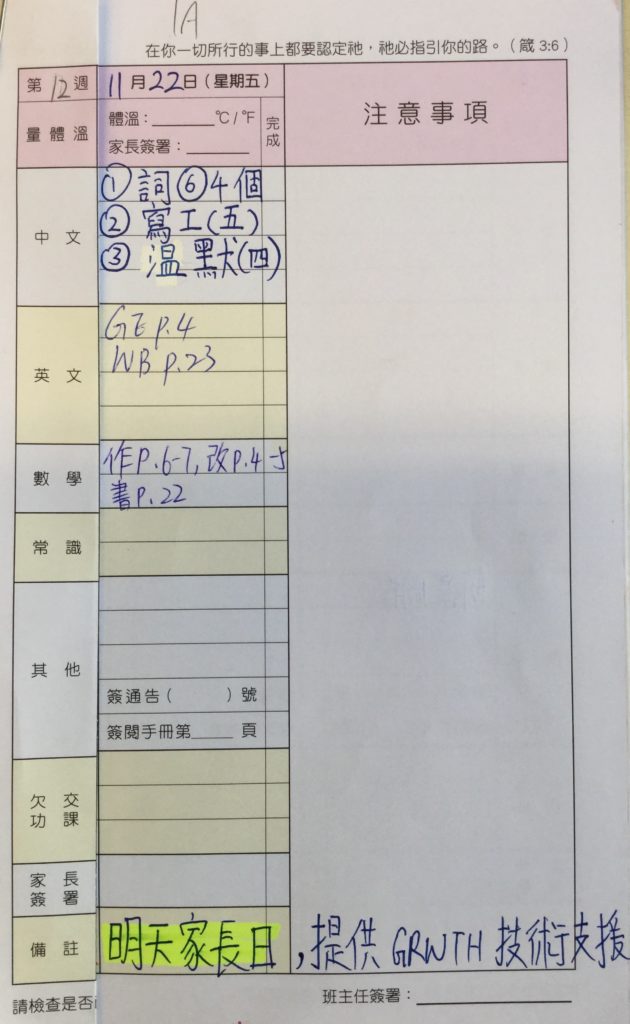 1A
在你一切所行的事上都要認定祂，祂必指引你的路。（箴 3:6）
第12週
11月22日（星期五）
注意事項
量體溫
體溫：______℃/℉
家長簽署：______
完成
中文
①詞⑥4個
②寫工(五)
③温默(四)
英文
GE p.4
WB p.23
數學
作P.6-7,改p.4-5
書p.22
常識
其他
簽通告（ ）號
簽閱手冊第____頁
欠交功課
家長簽署
備註
明天家長日,提供 GRWTH 技術支援
請檢查是否
班主任簽署：____________